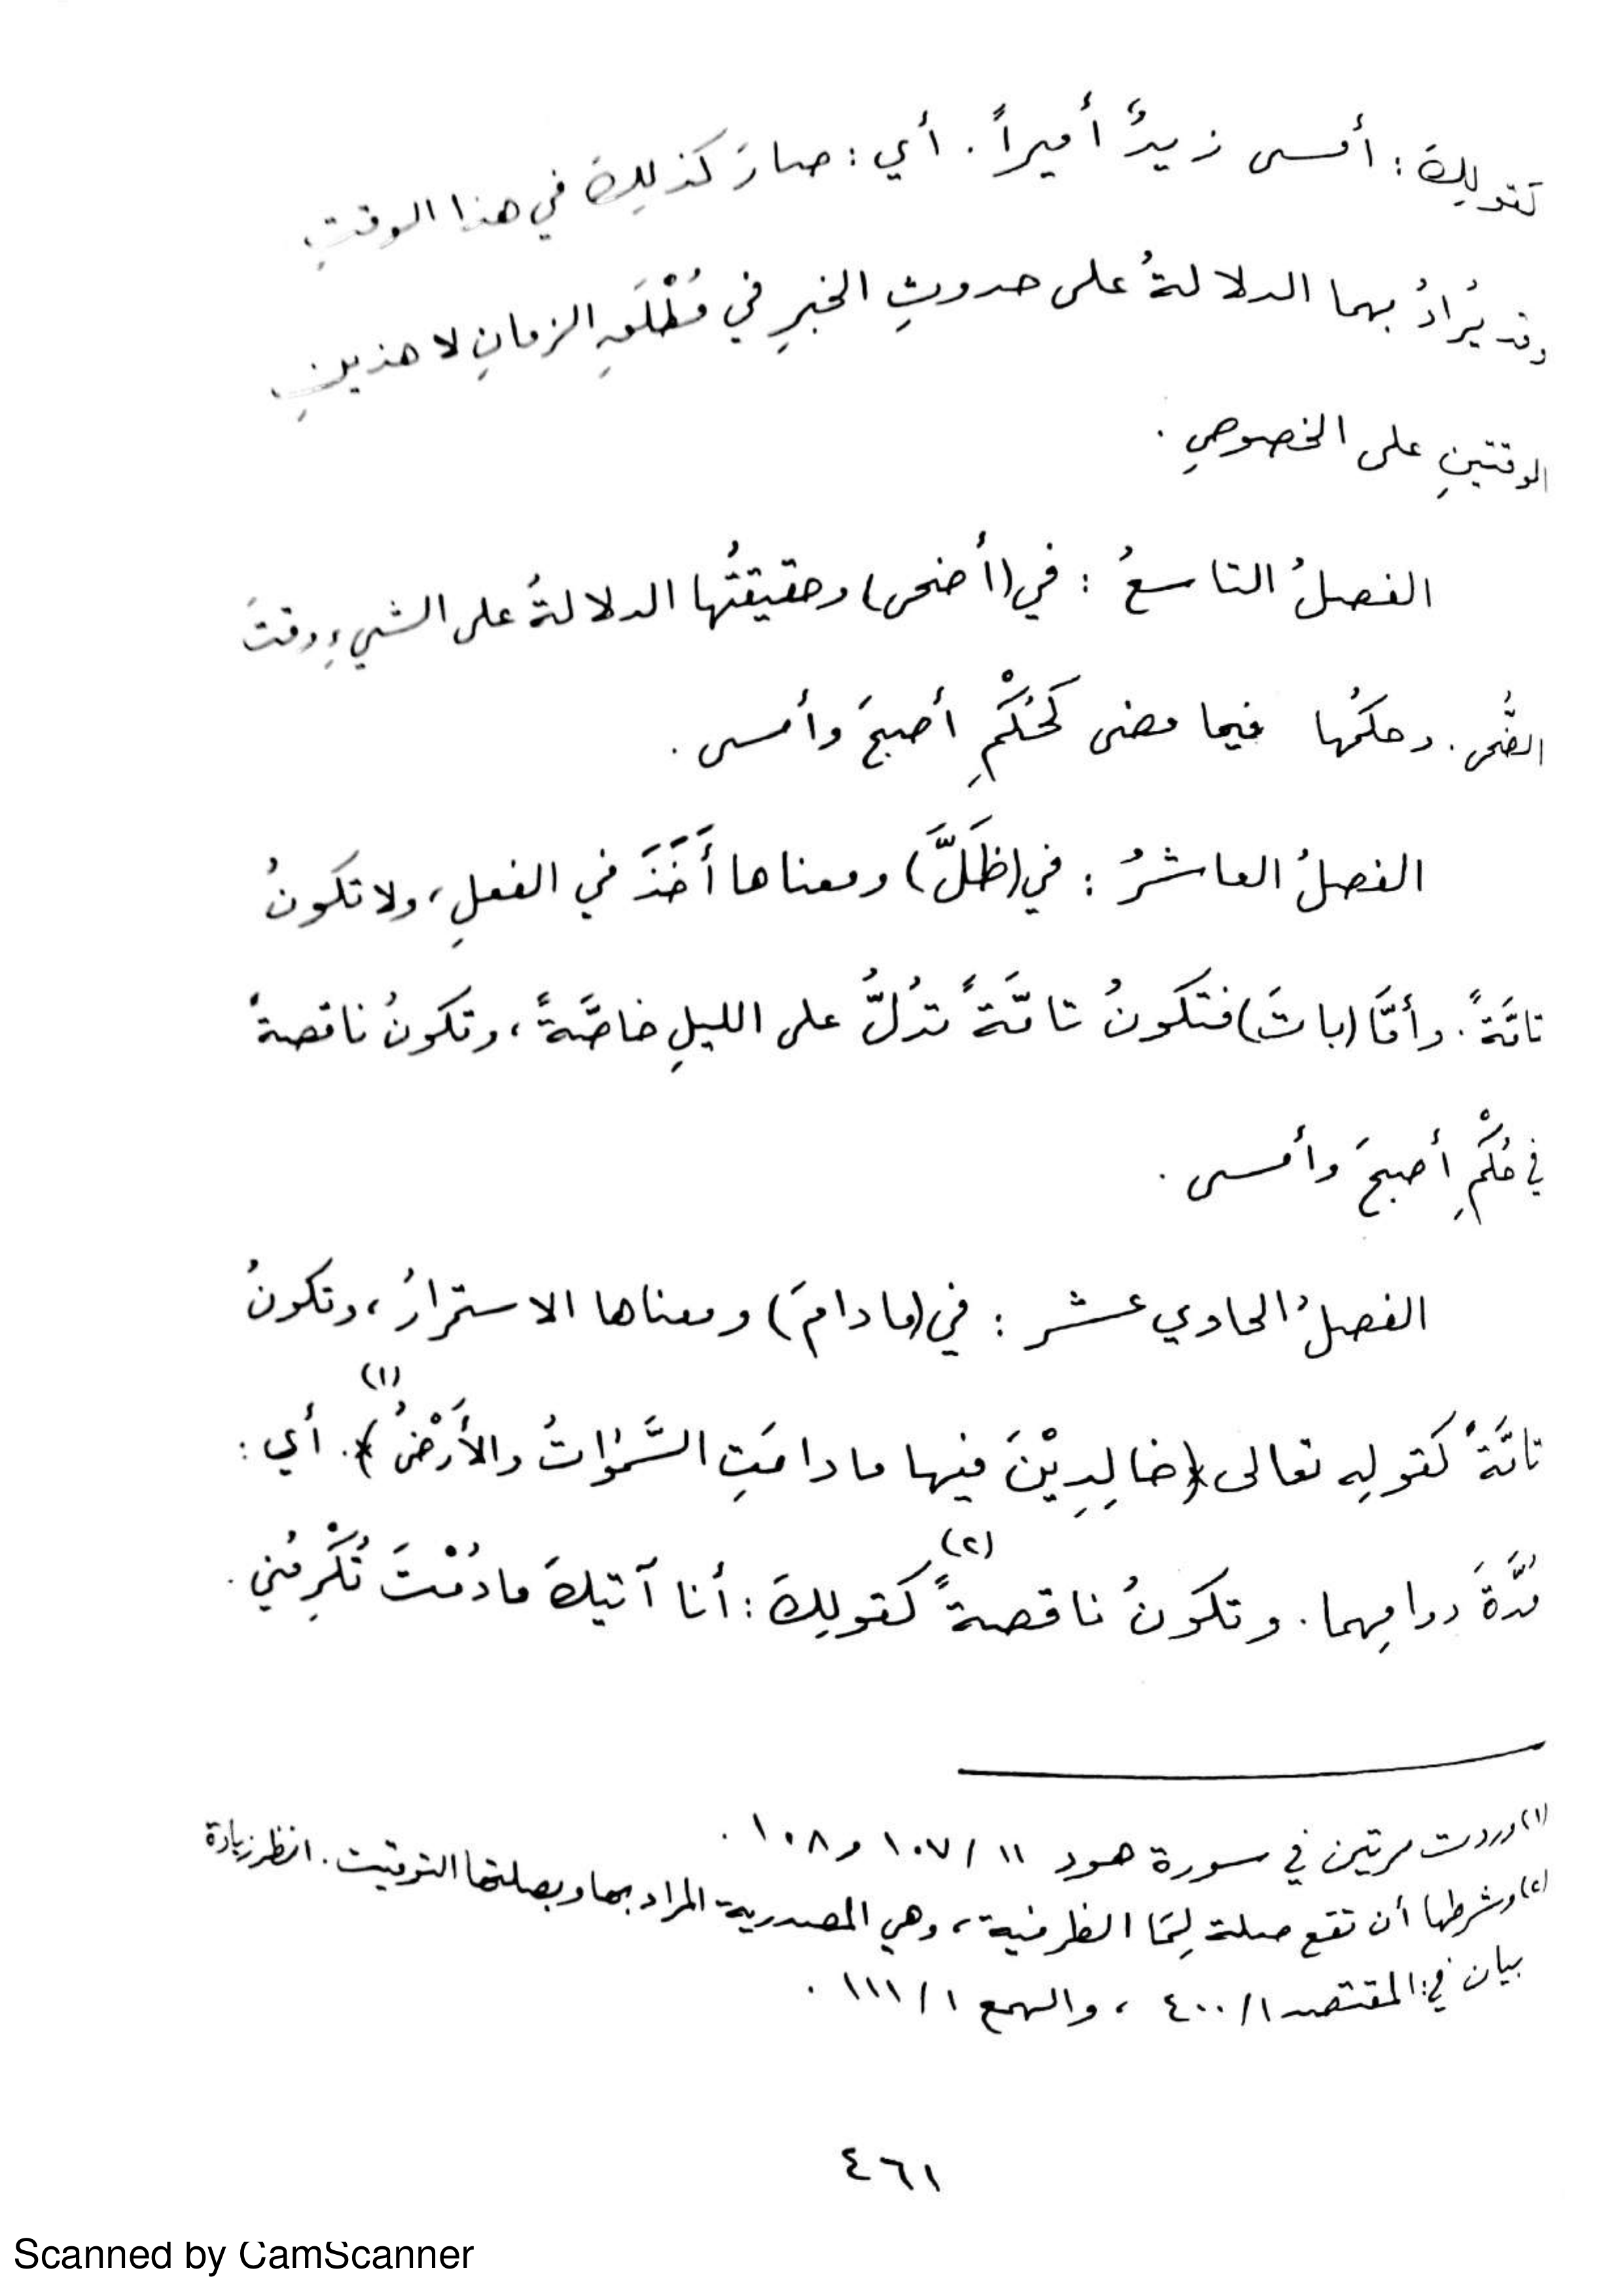 كقولِكَ : أمسى زيدٌ أميراً . أي : صارَ كذلِكَ في هذا الوقتِ
وقد يُرادُ بهما الدلالةُ على حدوثِ الخبرِ في مُطْلَقِ الزمانِ لا هذينِ
الوقتينِ على الخصوصِ .
الفصلُ التاسعُ : في (أضحى) وحقيقتُها الدلالةُ على الشيءِ وقتَ
الضُّحى . وحكمُها فيما مضى كَحُكْمِ أصبحَ وأمسى .
الفصلُ العاشرُ : في (ظَلَّ) ومعناها أَخَذَ في الفعلِ ، ولا تكونُ
تامَّةً . وأمَّا (باتَ) فتكونُ تامَّةً تدُلُّ على الليلِ خاصَّةً ، وتكونُ ناقصةً
في حُكْمِ أصبحَ وأمسى .
الفصلُ الحادي عشر : في (مادامَ) ومعناها الاستمرارُ ، وتكونُ
تامَّةً كقولِه تعالى ﴿خالِدِيْنَ فيها مادامَتِ السَّمٰواتُ والأَرْضُ﴾(١) . أي :
مُدَّةَ دوامِهما . وتكونُ ناقصةً(٢) كقولِكَ : أنا آتيكَ مادُمْتَ تُكْرِمُني .
(١) وردت مرتين في سورة هود ١١ / ١٠٧ و ١٠٨ .
(٢) وشرطها أن تقع صلة لِمَا الظرفية ، وهي المصدرية المراد بها وبصلتها التوقيت . انظر زيادة
بيان في : المقتصد ١/ ٤٠٠ ، والهمع ١ / ١١١ .
٤٦١
Scanned by CamScanner